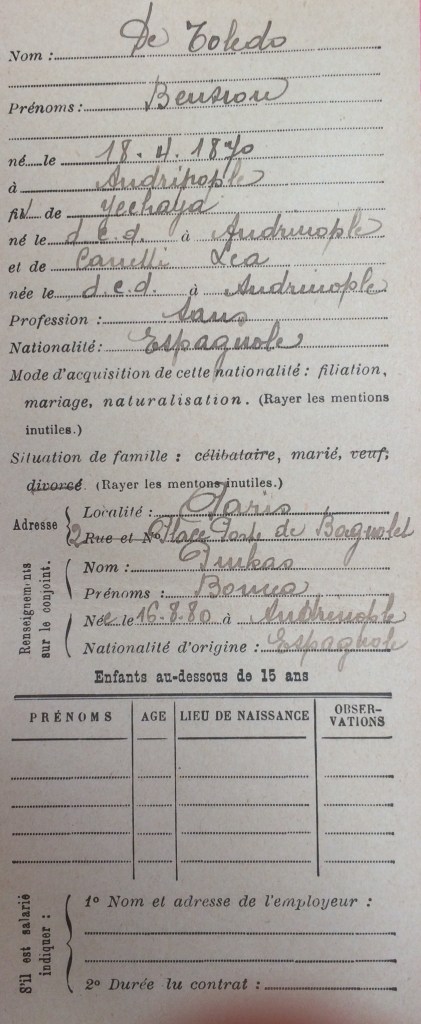 Nom : De Toledo
Prénoms : Bension
né le 18.4.1870
à Andrinople
fils de Yechaya
né le d.c.d. à Andrinople
et de Canetti Lea
née le d.c.d. à Andrinople
Profession : Sans
Nationalité : Espagnole
Mode d'acquisition de cette nationalité : filiation,
mariage, naturalisation. (Rayer les mentions
inutiles.)
Situation de famille : célibataire, marié, veuf,
divorcé. (Rayer les mentons inutiles.)
Adresse
Localité : Paris
2 Rue et N° Place Porte de Bagnolet
Renseignem nts
sur le conjoint.
Nom : Pinkas
Prénoms :
Née le 16-8-80 à Andrinople
Nationalité d'origine : Espagnole
Enfants au-dessous de 15 ans
PRÉNOMS AGE LIEU DE NAISSANCE OBSER-
VATIONS
S'il est salarié
indiquer :
1° Nom et adresse de l'employeur :
2° Durée du contrat :